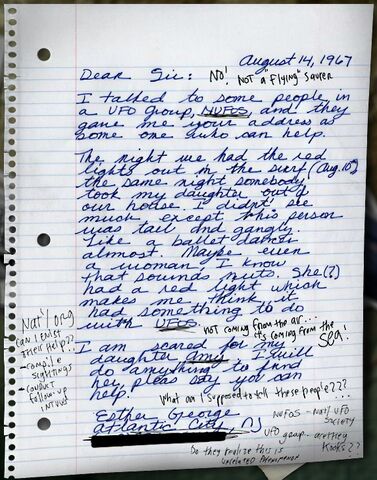 August 14, 1967
Dear Sir: No! Not a "Flying" Saucer
I talked to some people in
a UFO Group, NUFOS, and they
gave me your address as
some one who can help.
The night we had the red
lights out in the surf (Aug. 10th)
the same night somebody
took my daughter out of
our house I didn't see
much except this person
was tall and gangly.
Like a ballet dancer
almost. Maybe even
a woman, I know
that sounds nuts. She(?)
had a red light which
makes me think it
had something to do
with UFOS not coming from the air...
it's coming from the
SEA!
I am scared for my
daughter Amy. I will
do anything to find
her, pleas say you can
help.
Nat'l org
can I enlist
their help??
- compile
sightings
- conduct
follow-up
What am I supposed to tell these people???
Esther George
Atlantic City, NJ
NUFOS - Nat'l UFO
Society
UFO group... are they
Kooks??
Do they realize this is
unrelated phenomenon